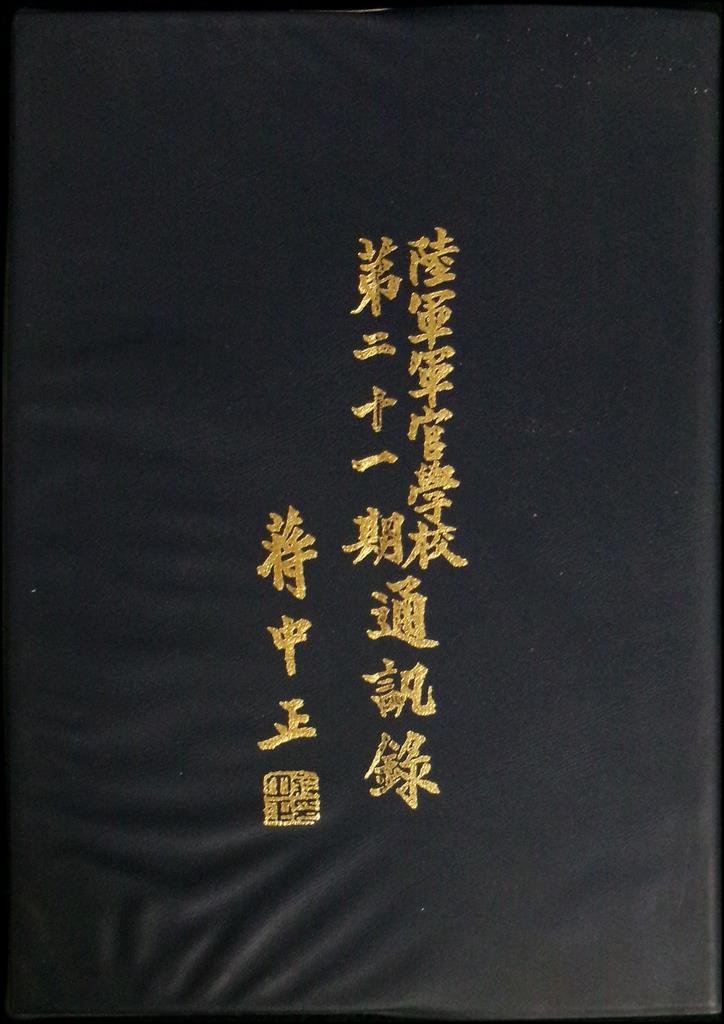 陸軍軍官學校
第二十一期
通訊錄
蔣中正